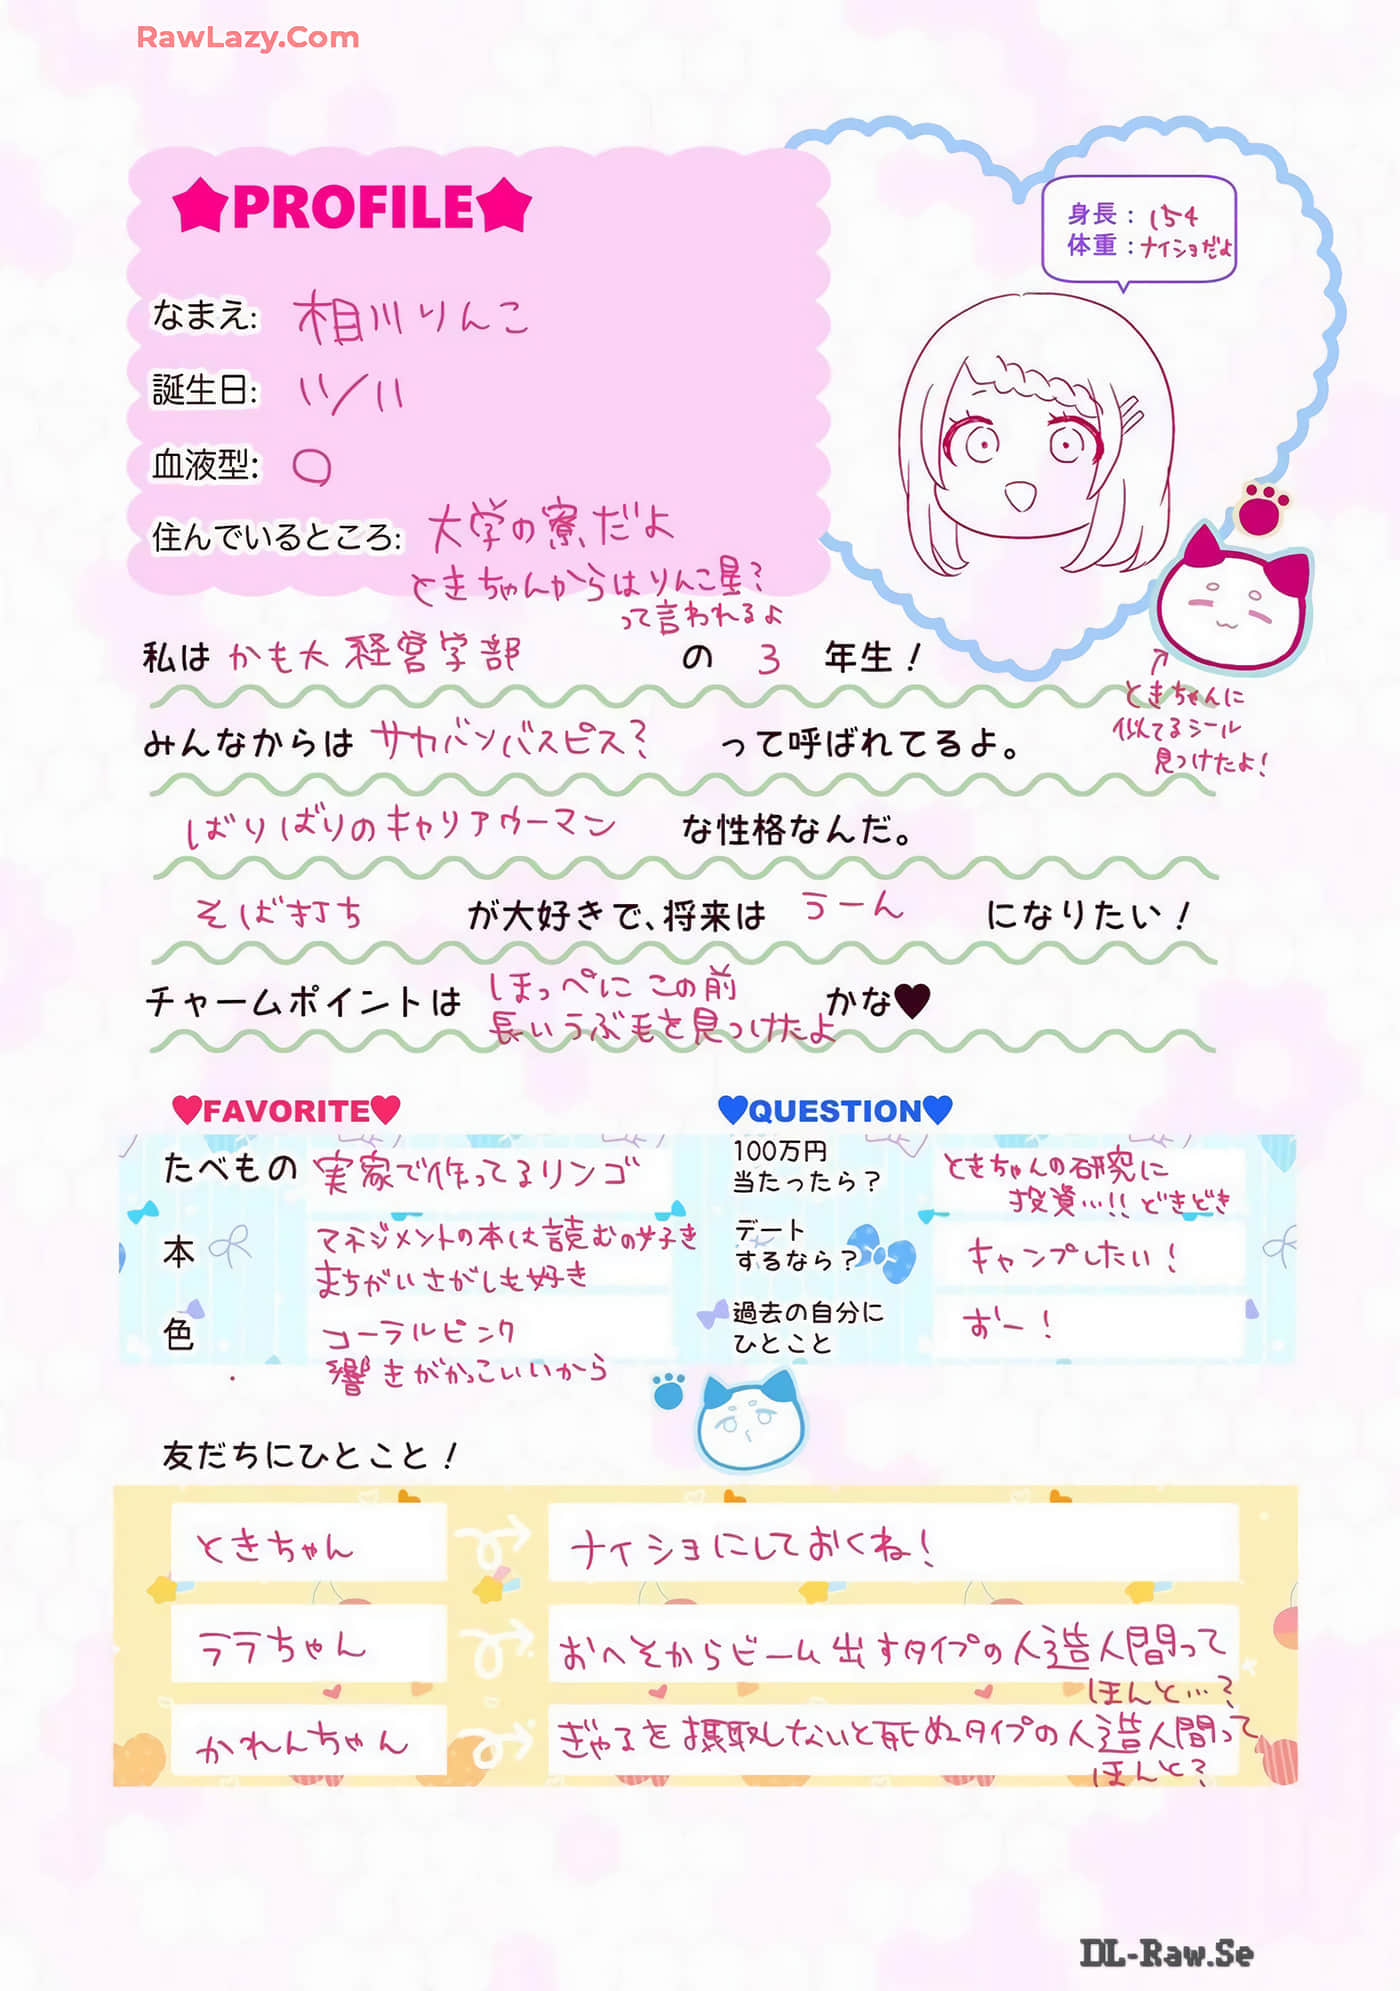 RawLazy.Com
★PROFILE★
身長：154
体重：ナイショだよ
なまえ: 相川りんこ
誕生日: 11/11
血液型: O
住んでいるところ: 大学の寮だよ
ときちゃんからはりんこ星？
って言われるよ
私は かも大 経営学部 の 3 年生！
ときちゃんに
似てるシール
見つけたよ！
みんなからは サカバンバスピス？ って呼ばれてるよ。
ばりばりのキャリアウーマン な性格なんだ。
そば打ち が大好きで、将来は うーん になりたい！
チャームポイントは ほっぺに この前
長いうぶ毛を見つけたよ かな♥
♥FAVORITE♥
たべもの 実家で作ってるリンゴ
本 マネジメントの本は読むの好き
まちがいさがしも好き
色 コーラルピンク
響きがかっこいいから
♥QUESTION♥
100万円
当たったら？ ときちゃんの研究に
投資…!! どきどき
デート
するなら？ キャンプしたい！
過去の自分に
ひとこと おー！
友だちにひとこと！
ときちゃん ナイショにしておくね！
ララちゃん おへそからビーム出すタイプの人造人間って
ほんと…？
かれんちゃん ぎゃるを摂取しないと死ぬタイプの人造人間って
ほんと？
DL-Raw.Se